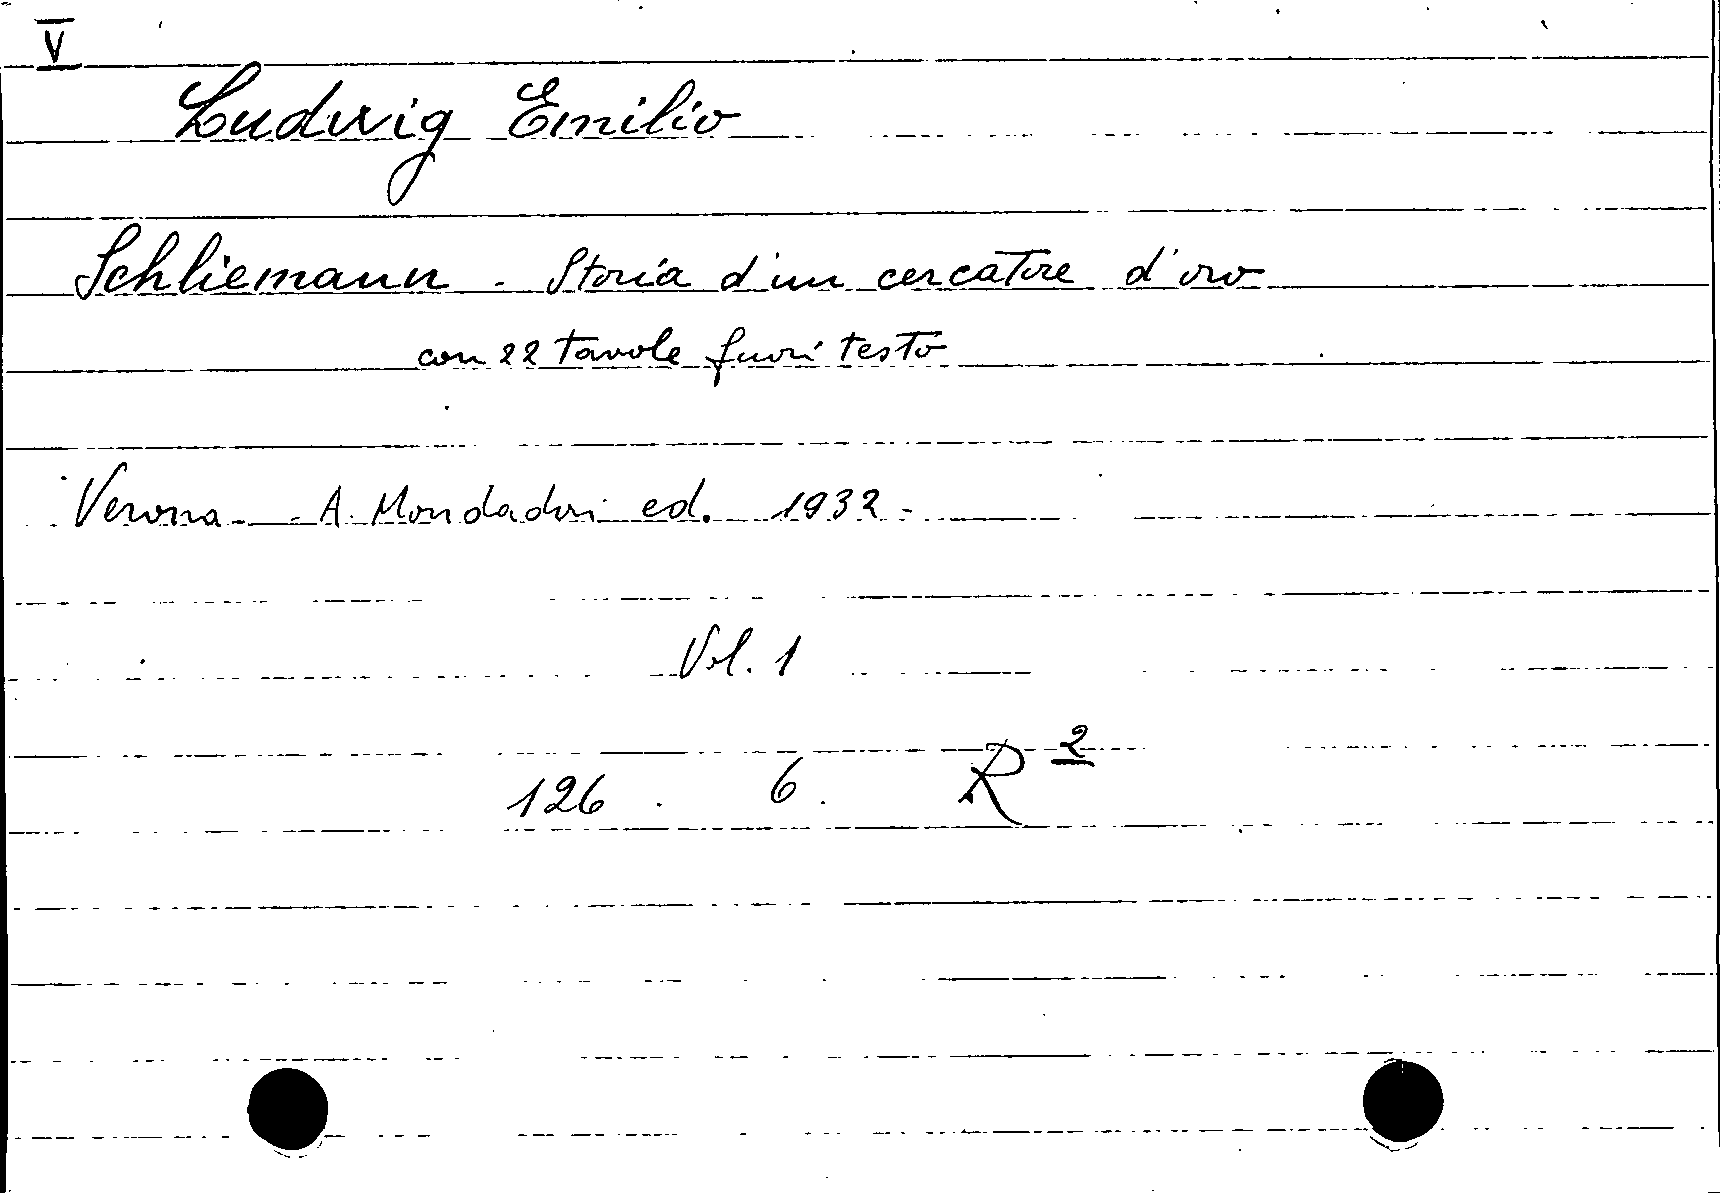 V
Ludwig Emilio
Schliemann - Storia d'un cercatore d'oro
con 22 tavole fuori testo
Verona - A. Mondadori ed. 1932 -
Vol. 1
126 . 6 . R 2